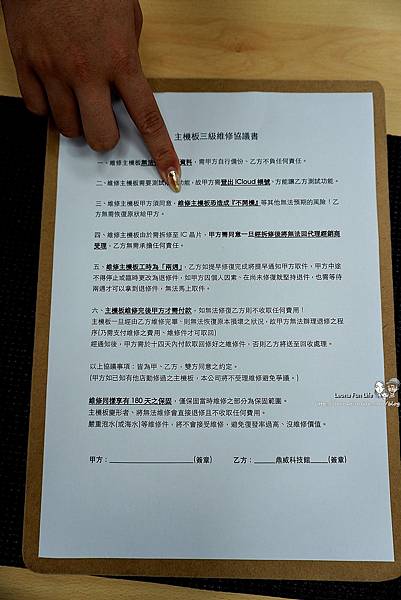 主機板三級維修協議書
一、維修主機板無法 資料，需甲方自行備份、乙方不負任何責任。
二、維修主機板需要測試 功能，故甲方需登出 iCloud 帳號，方能讓乙方測試功能。
三、維修主機板甲方須同意，維修主機板恐造成『不開機』等其他無法預期的風險！乙
方無需恢復原狀給甲方。
四、維修主機板由於需拆修至 IC 晶片，甲方需同意一旦經拆修後將無法回代理經銷商
受理，乙方無需承擔任何責任。
五、維修主機板工時為「兩週」，乙方如提早修復完成將提早通知甲方取件，甲方中途
不得停止或臨時更改為退修件，如甲方因個人因素、在尚未修復就堅持退件，也需等待
兩週才可以拿到退修件，無法馬上取件。
六、主機板維修完後甲方才需付款，如無法修復乙方則不收取任何費用！
主機板一旦經由乙方維修完畢、則無法恢復原本損壞之狀況，故甲方無法辦理退修之程
序(乃需支付維修之費用、維修件才可取回)
經通知後，甲方需於十四天內付款取回修好之維修件，否則乙方將送至回收處理。
以上協議事項：皆為甲、乙方，雙方同意之約定。
(甲方如已知有他店動修過之主機板，本公司將不受理維修避免爭議。)
維修同樣享有 180 天之保固，僅保固當時維修之部分為保固範圍。
主機板變形者、將無法維修會直接退修且不收取任何費用。
嚴重泡水(或海水)等維修件，將不會接受維修，避免復發率過高、沒維修價值。
甲方：____________________(簽章) 乙方：_____鼎威科技館____(簽章)
Leona Fun Life